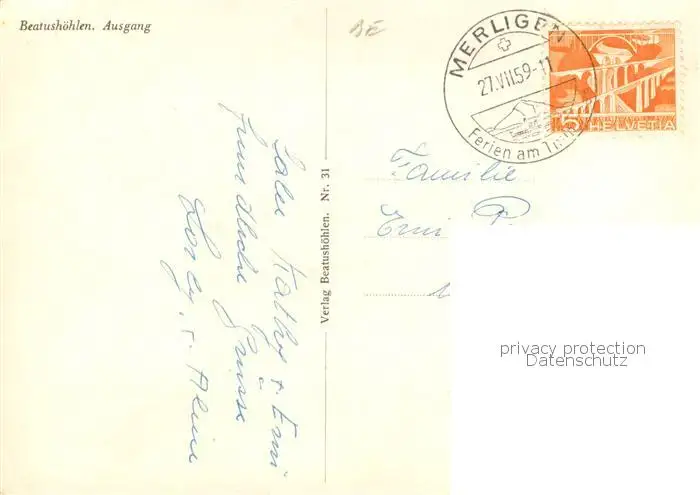 Beatushöhlen. Ausgang
BE
MERLIGEN
27.VII.59-11
Ferien am Thu
5 HELVETIA
Familie
Emi P.
Verlag Beatushöhlen. Nr. 31
Kathy + Emi
freundliche Grüsse
privacy protection
Datenschutz